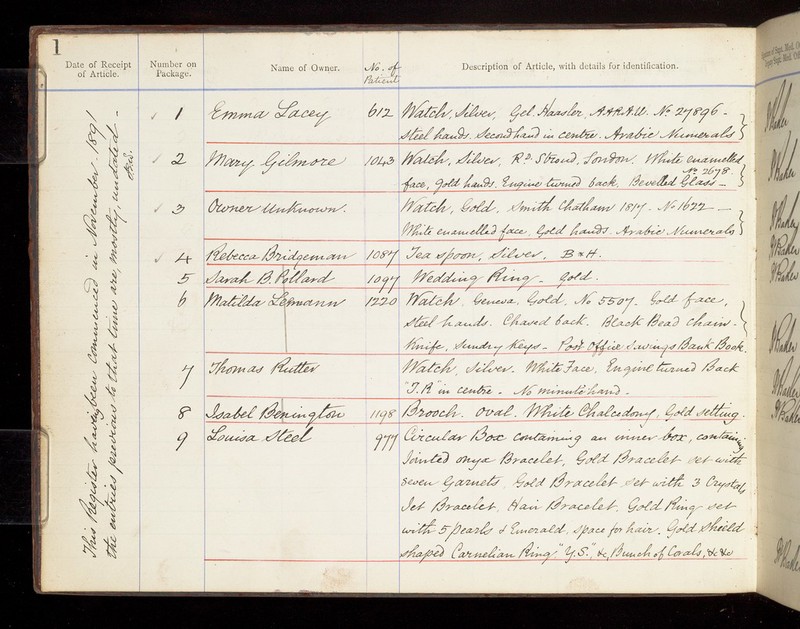 1
Date of Receipt of Article.
Number on Package.
Name of Owner.
No. of Patient
Description of Article, with details for identification.
This Register having been commenced in November 1891
the entries previous to that time are, mostly, undated -
1 Emma Lacey 612 Watch, Silver, Gel. Haasler, No 27896 -
Steel hands. Second hand in centre. Arabic Numerals
2 Mary Gilmore 1043 Watch, Silver, Rd. Strand, London. White enamelled
No 2678.
face, gold hands. Engine turned back, Bevelled Glass -
3 Owner Unknown. Watch, Gold, Smith Chatham 1817 - No 1622 -
White enamelled face, Gold hands. Arabic Numerals
4 Rebecca Bridgeman 1087 Tea Spoon, Silver. B & H.
5 Sarah B. Pollard 1097 Wedding Ring - Gold.
6 Matilda Lemann 1220 Watch. Geneva, Gold, No 5507. Gold face,
Steel hands. Chased back. Black Bead chain -
Knife, Sundry Keys - Post Office Savings Bank Book.
7 Thomas Rutter Watch, Silver. White Face. Engine turned Back
"T.R" in centre - No minute hand -
8 Isabel Benington 1198 Brooch. Oval. White Chalcedony, Gold setting.
9 Louisa Steel 977 Circular Box containing an inner box, containing
Jointed onyx Bracelet, Gold Bracelet set with
seven Garnets. Gold Bracelet set with 3 Crystals
Jet Bracelet. Hair Bracelet. Gold Ring set
with 5 pearls & Emerald, space for hair. Gold Shield
shaped Carnelian Ring. "Y.S.", &c, Bunch of Corals, &c &c